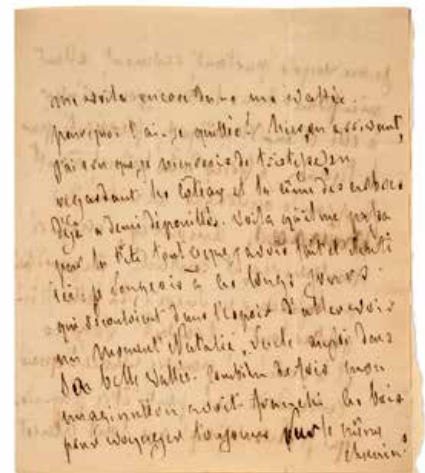 me voila encore dans ma vallée.
pourquoi l'ai-je quittée! hier, en arrivant,
j'ai cru que je mourrois de tristesse, en
regardant les côteaux et la cime des arbres
déjà à demi dépouillés. voila qu'il me passa
par la tête tout ce que j'avois fait et senti
ici: je songeois à ces longs jours
qui s'écouloient dans l'espoir d'aller voir
un moment Natalie, seule aussi dans
sa belle vallée. Combien de fois mon
imagination avoit franchi les bois
pour voyager toujours sur le même
chemin!